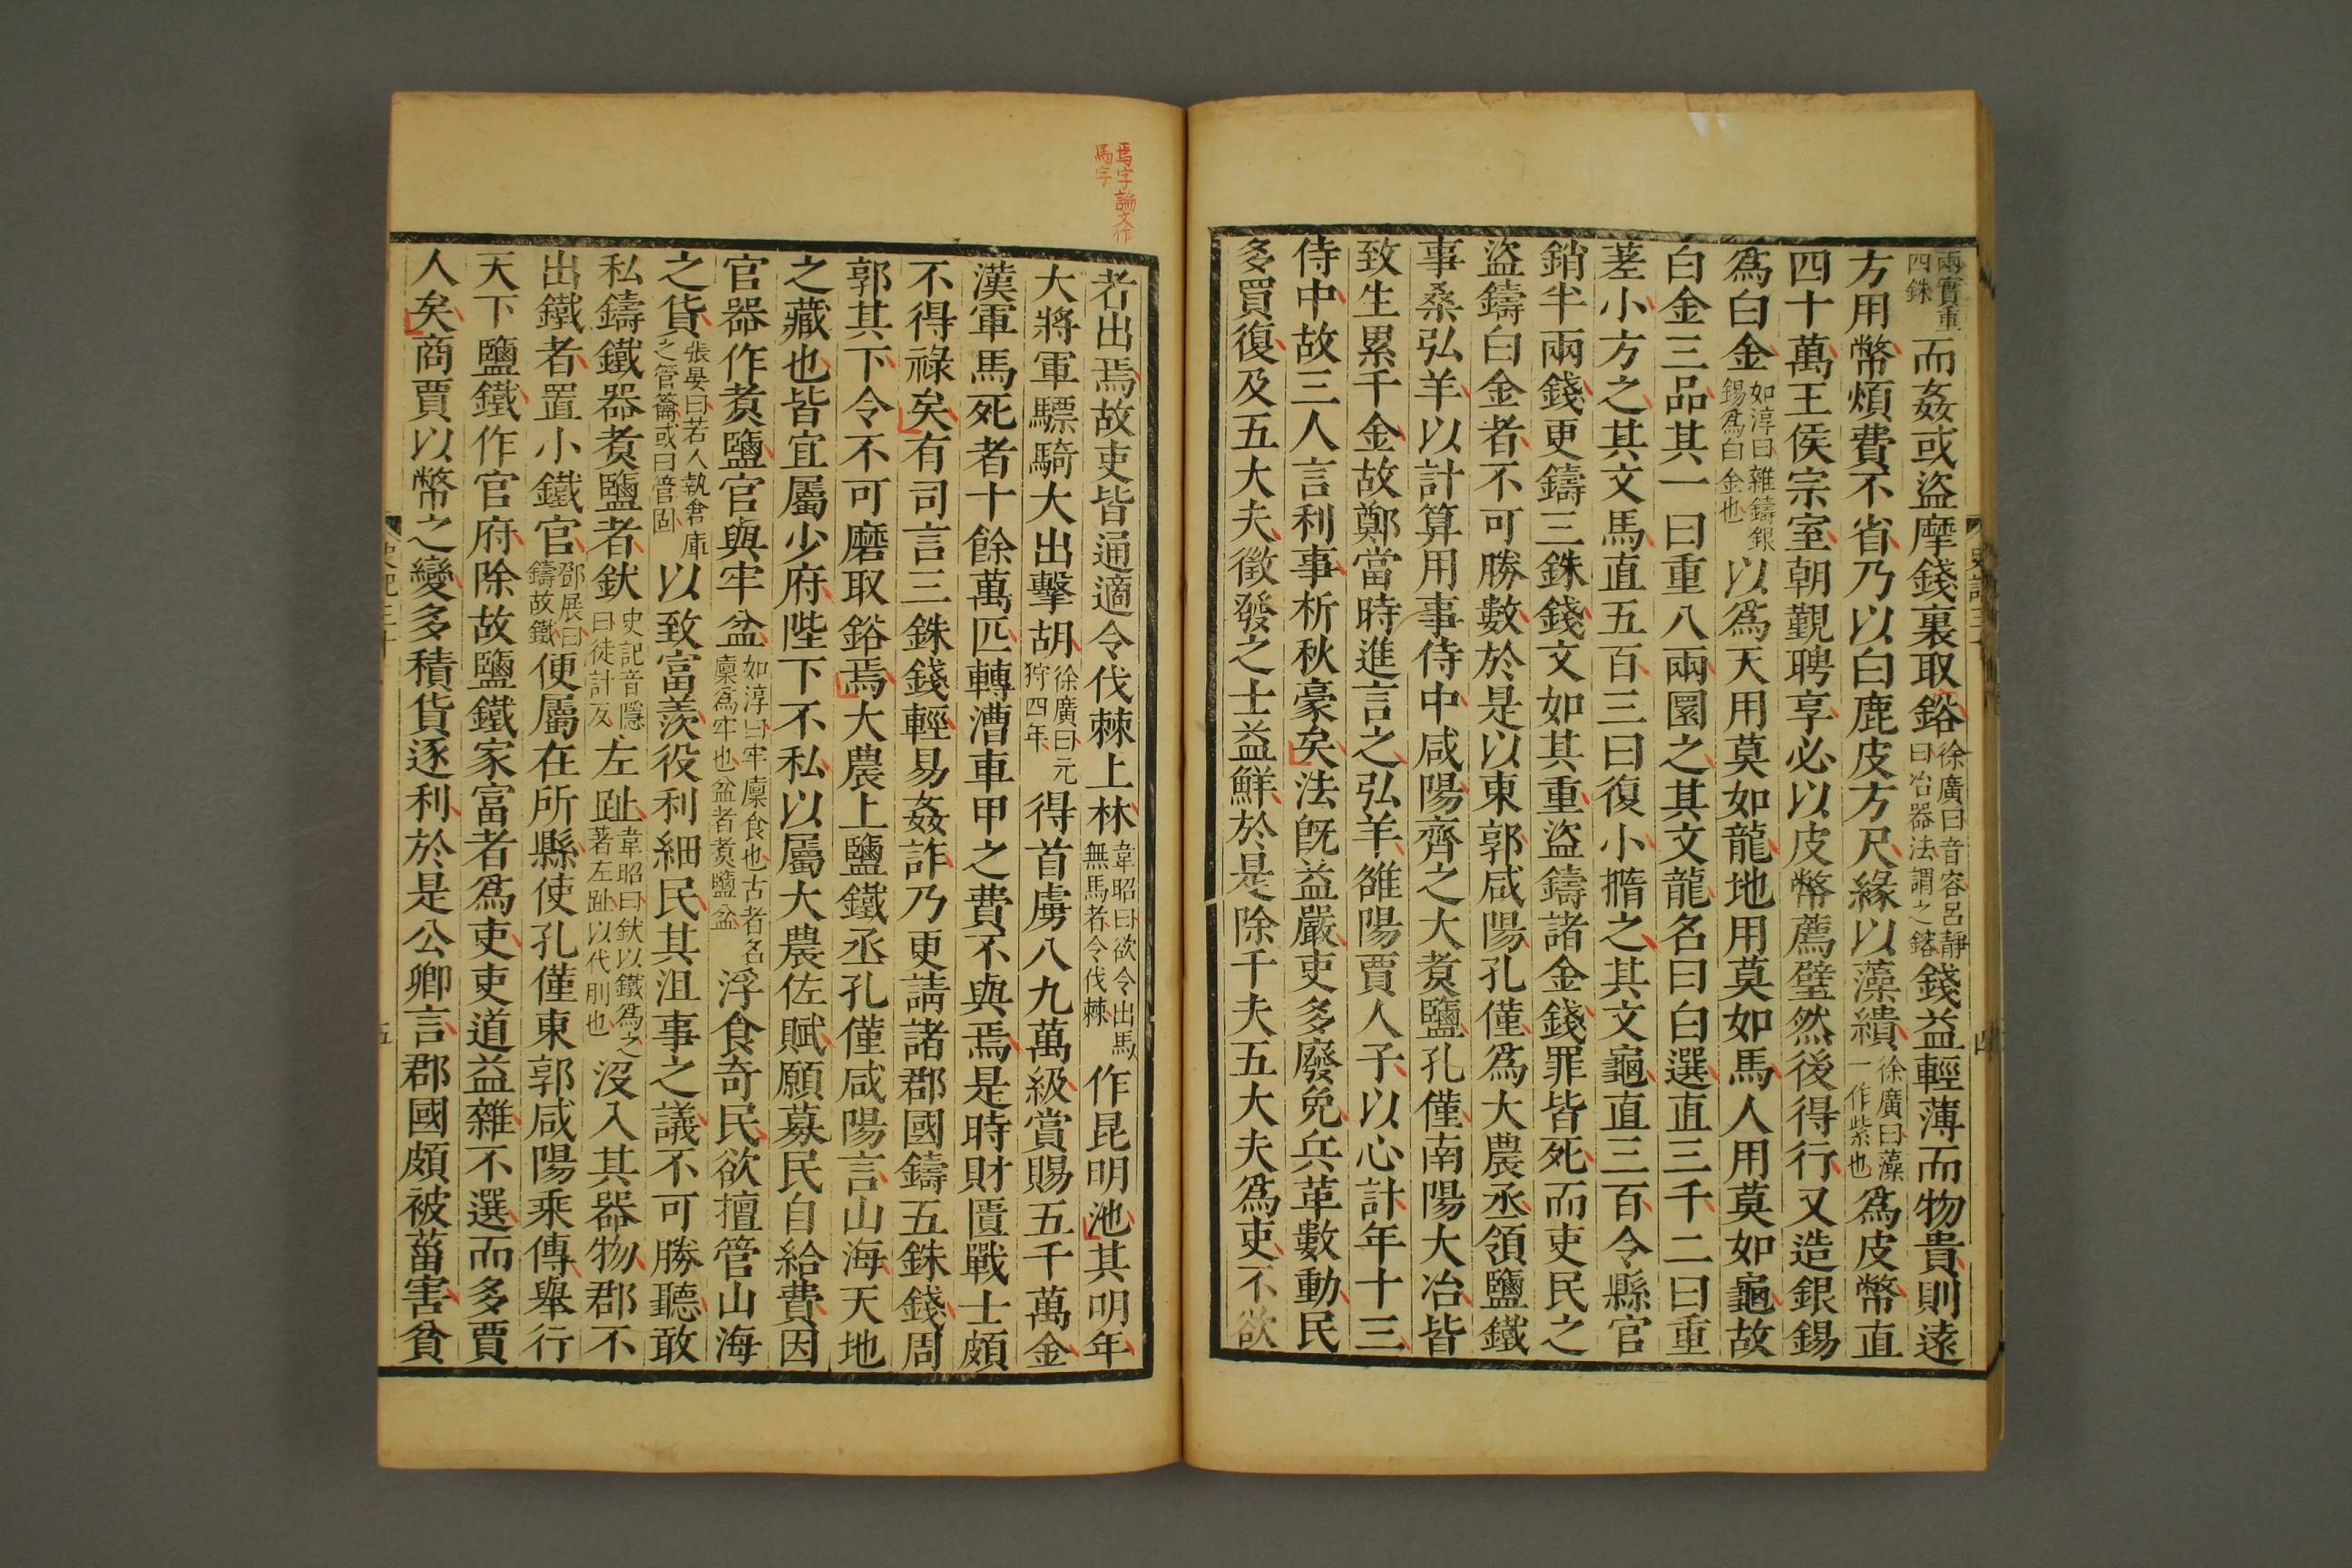 兩實重四銖而姦或盜摩錢裏取鋊徐廣曰音容呂靜曰冶器法謂之鎔錢益輕薄而物貴則遠
方用幣煩費不省乃以白鹿皮方尺緣以藻繢徐廣曰藻一作紫也爲皮幣直
四十萬王侯宗室朝覲聘享必以皮幣薦璧然後得行又造銀錫
爲白金如淳曰雜鑄銀錫爲白金也以爲天用莫如龍地用莫如馬人用莫如龜故
白金三品其一曰重八兩圜之其文龍名曰白選直三千二曰重
差小方之其文馬直五百三曰復小撱之其文龜直三百令縣官
銷半兩錢更鑄三銖錢文如其重盜鑄諸金錢罪皆死而吏民之
盜鑄白金者不可勝數於是以東郭咸陽孔僅爲大農丞領鹽鐵
事桑弘羊以計算用事侍中咸陽齊之大煑鹽孔僅南陽大冶皆
致生累千金故鄭當時進言之弘羊雒陽賈人子以心計年十三
侍中故三人言利事析秋豪矣法旣益嚴吏多廢免兵革數動民
多買復及五大夫徵發之士益鮮於是除千夫五大夫爲吏不欲
焉字論文作
馬字
者出焉故吏皆通適令伐棘上林韋昭曰欲令出馬無馬者令伐棘作昆明池其明年
大將軍驃騎大出擊胡徐廣曰元狩四年得首虜八九萬級賞賜五千萬金
漢軍馬死者十餘萬匹轉漕車甲之費不與焉是時財匱戰士頗
不得祿矣有司言三銖錢輕易姦詐乃更請諸郡國鑄五銖錢周
郭其下令不可磨取鋊焉大農上鹽鐵丞孔僅咸陽言山海天地
之藏也皆宜屬少府陛下不私以屬大農佐賦願募民自給費因
官器作煑鹽官與牢盆如淳曰牢廩食也古者名廩爲牢也盆者煑鹽盆浮食奇民欲擅管山海
之貨張晏曰若人執倉庫之管籥或曰管固以致富羨役利細民其沮事之議不可勝聽敢
私鑄鐵器煑鹽者釱史記音隱曰徒計反左趾韋昭曰釱以鐵爲之著左趾以代刖也沒入其器物郡不
出鐵者置小鐵官鄧展曰鑄故鐵便屬在所縣使孔僅東郭咸陽乘傳舉行
天下鹽鐵作官府除故鹽鐵家富者爲吏吏道益雜不選而多賈
人矣商賈以幣之變多積貨逐利於是公卿言郡國頗被菑害貧